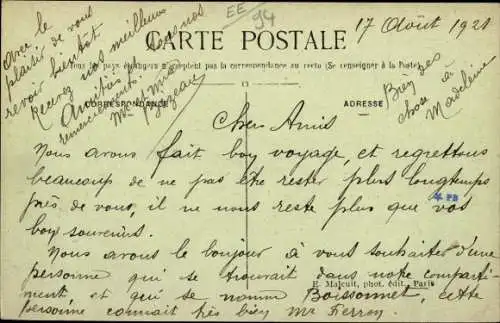 EE 94
17 Août 1921
CARTE POSTALE
Tous les pays étrangers n'acceptent pas la correspondance au recto (Se renseigner à la Poste)
CORRESPONDANCE
ADRESSE
Chers Amis
Nous avons fait boy voyage, et regrettons
beaucoup de ne pas être rester plus longtemps
près de vous, il ne nous reste plus que vos
boys souvenirs.
Nous avons le bonjour à vous souhaiter d'une
personne qui se trouvait dans notre comparti-
ment et qui se nomme Boissonnet, cette
personne connait très bien Mr Ferron
E. Malcuit, phot. édit., Paris
Avec le
plaisir de vous
revoir bientôt
Recevez nos meilleurs
Amitiés
remerciements
Bien des
chose à
Madeleine
PB